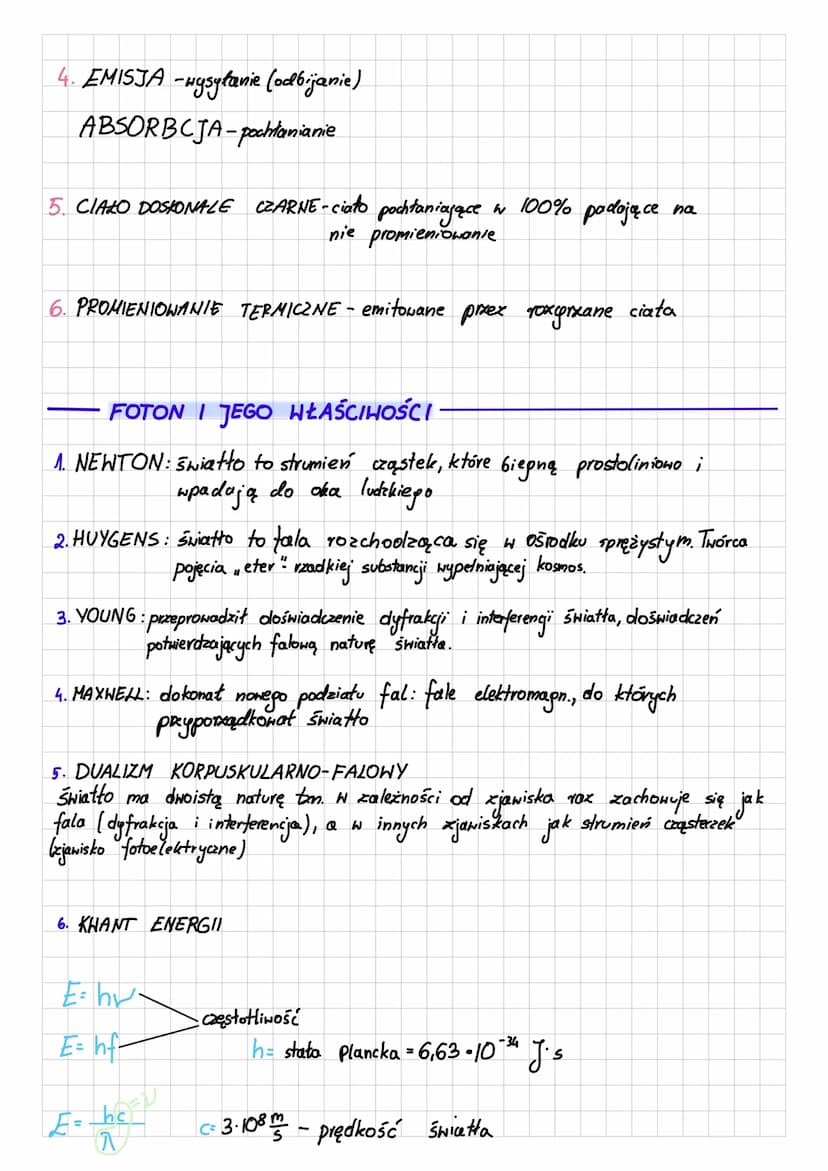 4. EMISJA - wysyłanie (odbijanie)
ABSORBCJA - pochłanianie
5. CIAŁO DOSKONALE CZARNE - ciało pochłaniające w 100% padające na
nie promieniowanie
6. PROMIENIOWANIE TERMICZNE - emitowane przez rozgrzane ciała
FOTON I JEGO WŁAŚCIWOŚCI
1. NEWTON: światło to strumień cząstek, które biegną prostoliniowo i
wpadają do oka ludzkiego
2. HUYGENS: światło to fala rozchodząca się w ośrodku sprężystym. Twórca
pojęcia „eter": rzadkiej substancji wypełniającej kosmos.
3. YOUNG: przeprowadził doświadczenie dyfrakcji i interferencji światła, doświadczeń
potwierdzających falową naturę światła.
4. MAXWELL: dokonał nowego podziału fal: fale elektromagn., do których
przyporządkował światło
5. DUALIZM KORPUSKULARNO-FALOWY
Światło ma dwoistą naturę tzn. w zależności od zjawiska raz zachowuje się jak
fala (dyfrakcja i interferencja), a w innych zjawiskach jak strumień cząsteczek
(zjawisko fotoelektryczne)
6. KWANT ENERGII
E = hν
częstotliwość
E = hf
h = stała Plancka = 6,63 · 10⁻³⁴ J·s
E = hc/λ = ν
c = 3·10⁸ m/s - prędkość światła